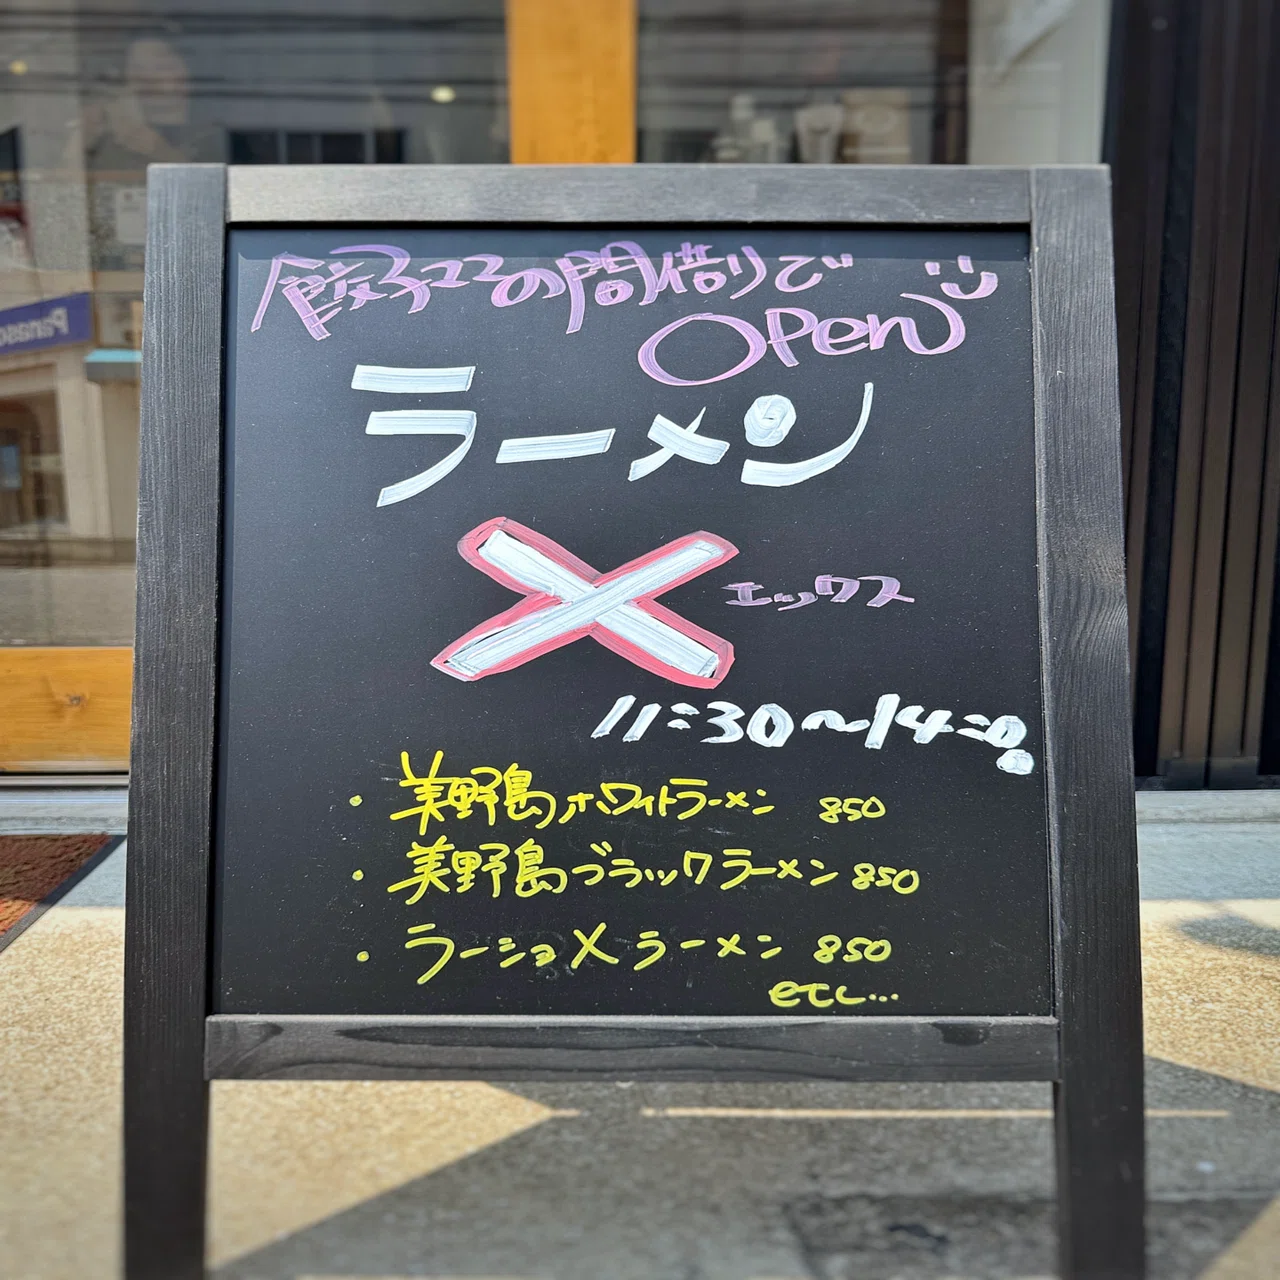 餃子ココの間借りで
OPEN
ラーメン
X エックス
11:30〜14:00
・美野島ホワイトラーメン 850
・美野島ブラックラーメン 850
・ラーショXラーメン 850
etc...
Panaso